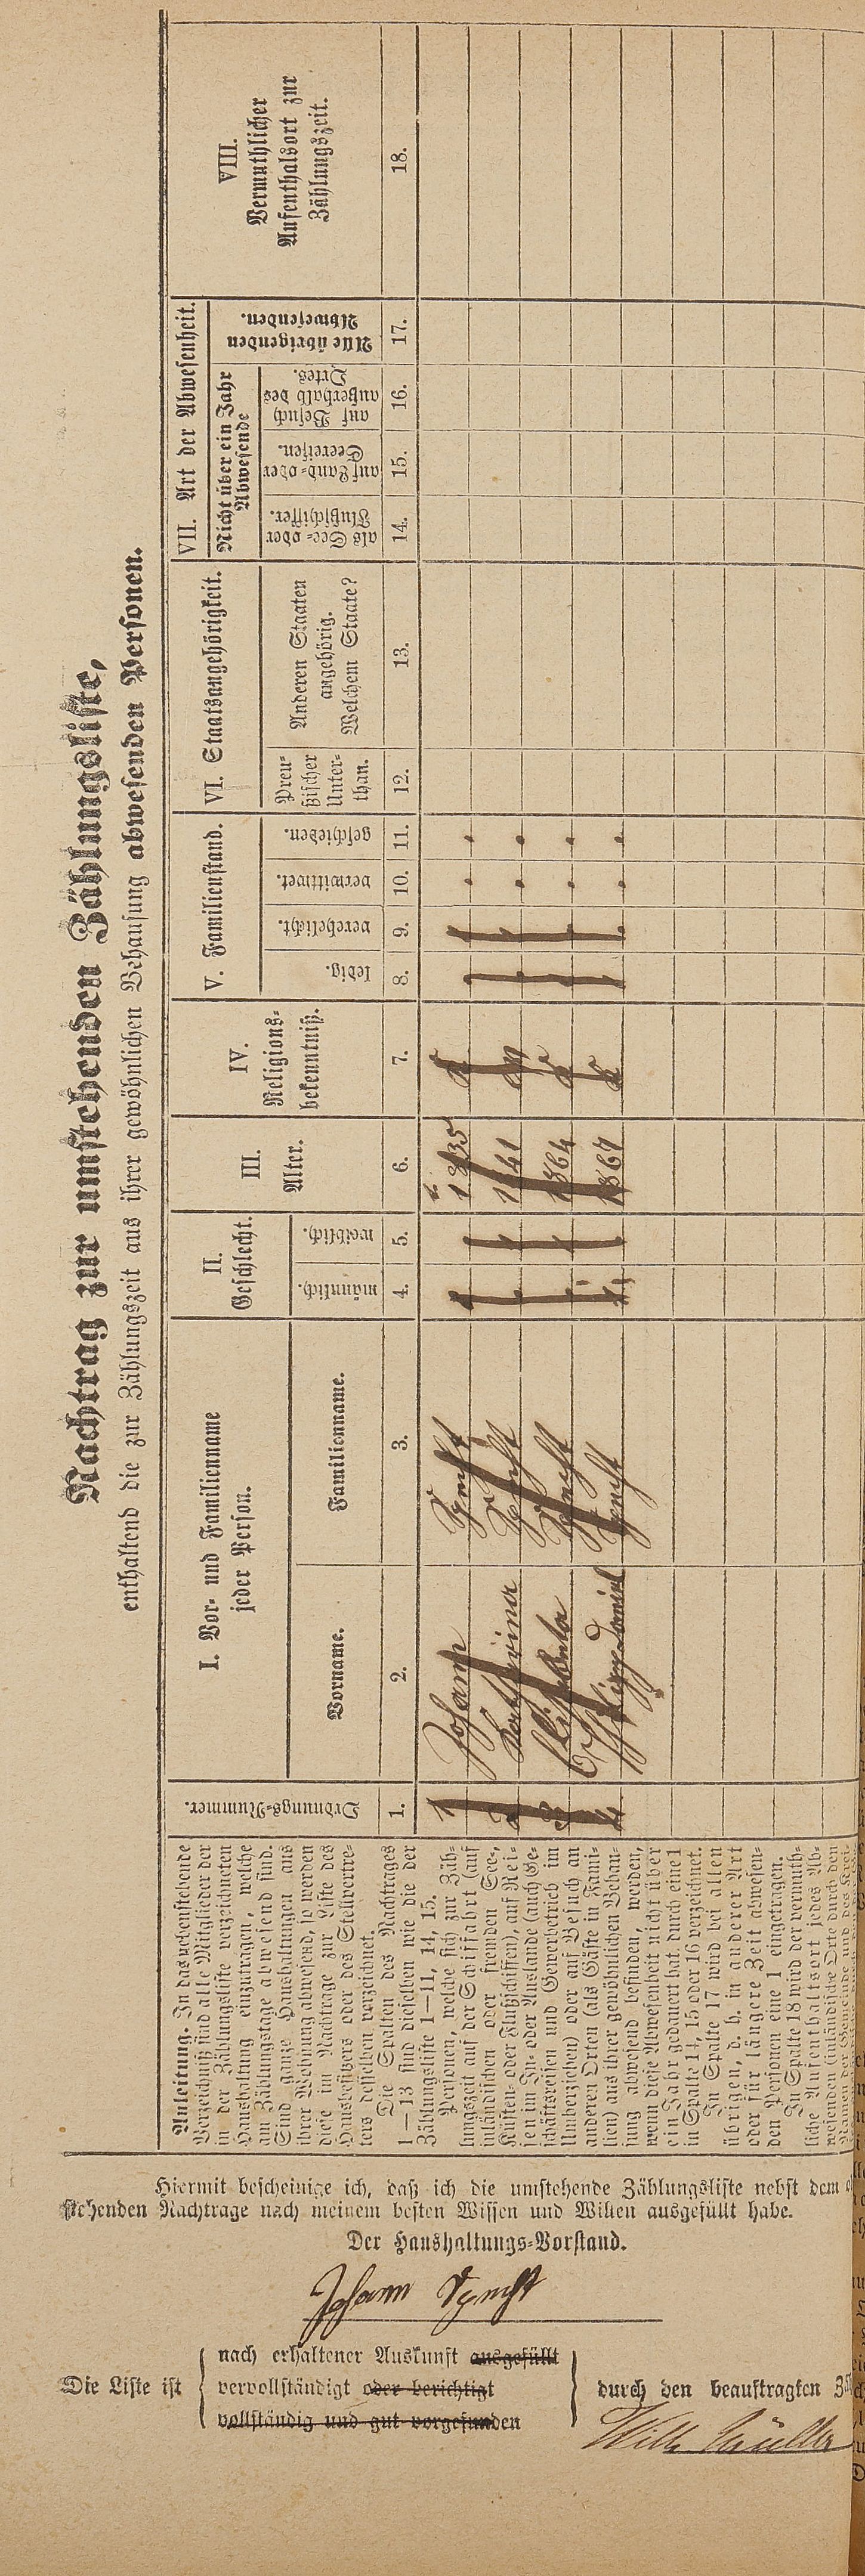 Nachtrag zur umstehenden Zählungsliste,
enthaltend die zur Zählungszeit aus ihrer gewöhnlichen Behausung abwesenden Personen.
Anleitung. In das nebenstehende
Verzeichniß sind alle Mitglieder der
in der Zählungsliste verzeichneten
Haushaltung einzutragen, welche
am Zählungstage abwesend sind.
Sind ganze Haushaltungen aus
ihrer Wohnung abwesend, so werden
diese im Nachtrage zur Liste des
Hausbesitzers oder des Stellvertre-
ters desselben verzeichnet.
Die Spalten des Nachtrages
1—13 sind dieselben wie die der
Zählungsliste 1—11, 14, 15.
Personen, welche sich zur Zäh-
lungszeit auf der Schiffahrt (auf
inländischen oder fremden See-,
Küsten- oder Flußschiffen), auf Rei-
sen im In- oder Auslande (auch Ge-
schäftsreisen und Gewerbebetrieb im
Umherziehen) oder auf Besuch an
anderen Orten (als Gäste in Fami-
lien) aus ihrer gewöhnlichen Behau-
sung abwesend befinden, werden,
wenn diese Abwesenheit nicht über
ein Jahr gedauert hat, durch eine 1
in Spalte 14, 15 oder 16 verzeichnet.
In Spalte 17 wird bei allen
übrigen, d. h. in anderer Art
oder für längere Zeit abwesen-
den Personen eine 1 eingetragen.
In Spalte 18 wird der vermuth-
liche Aufenthaltsort jedes Ab-
wesenden (inländische Orte durch den
Namen der Gemeinde und des Krei-
Ordnungs-Nummer.
I. Vor- und Familienname
jeder Person.
Vorname.
Familienname.
II.
Geschlecht.
männlich.
weiblich.
III.
Alter.
IV.
Religions-
bekenntniß.
V. Familienstand.
ledig.
verehelicht.
verwittwet.
geschieden.
VI. Staatsangehörigkeit.
Preu-
ßischer
Unter-
than.
Anderen Staaten
angehörig.
Welchem Staate?
VII. Art der Abwesenheit.
Nicht über ein Jahr
Abwesende
als See- oder
Flußschiffer.
auf Land- oder
Seereisen.
auf Besuch
außerhalb des
Ortes.
Alle übrigen
Abwesenden.
VIII.
Vermuthlicher
Aufenthalsort zur
Zählungszeit.
1. 2. 3. 4. 5. 6. 7. 8. 9. 10. 11. 12. 13. 14. 15. 16. 17. 18.
1 Johann 1835
2 Katharina 1841
3 Elisabeta 1864
4 Philipp Daniel 1867
Hiermit bescheinige ich, daß ich die umstehende Zählungsliste nebst dem
stehenden Nachtrage nach meinem besten Wissen und Willen ausgefüllt habe.
Der Haushaltungs-Vorstand.
Johann
Die Liste ist
nach erhaltener Auskunft ausgefüllt
vervollständigt oder berichtigt
vollständig und gut vorgefunden
durch den beauftragten
Wilh Müller